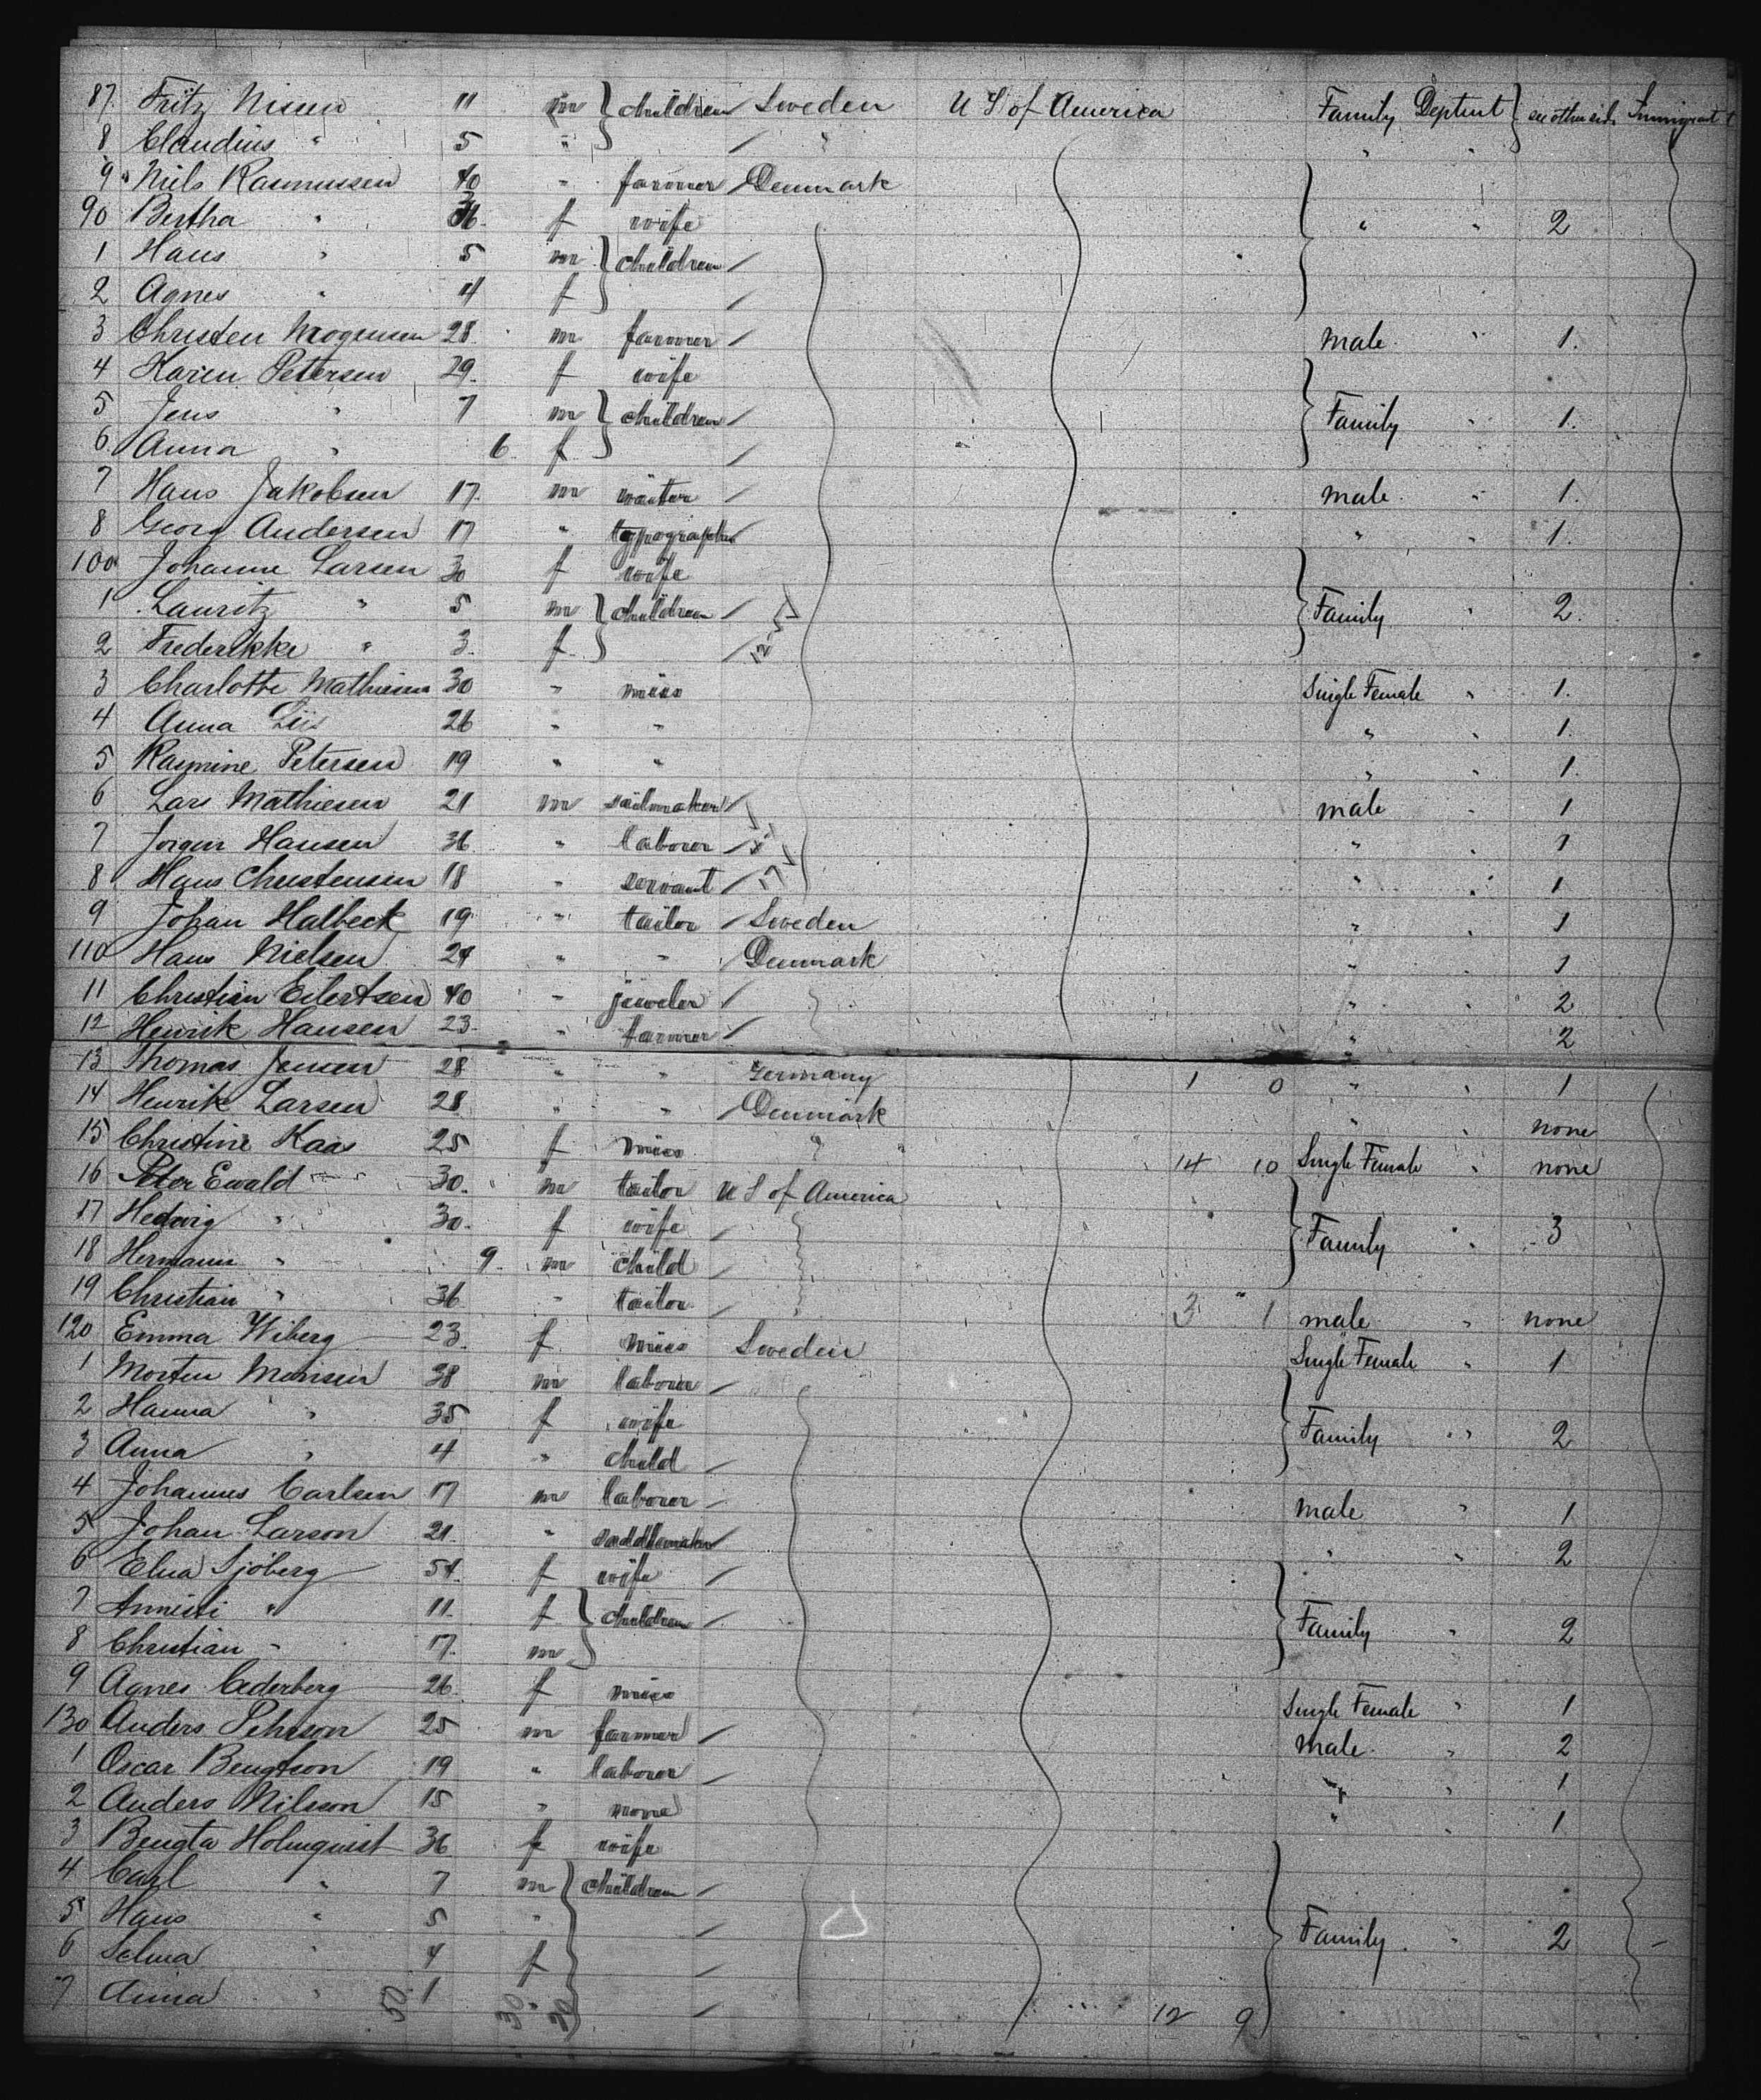 87. Fritz Nissen 11 m } children Sweden U S of America Family Deptmt } see other side Immigrant
8 Claudius " 5 " / " " "
9 Niels Rasmussen 40 " farmer / Denmark
90 Bertha " 36. f wife " " 2
1 Hans " 5 m } children /
2 Agnes " 4 f /
3 Christen Mogensen 28. m farmer / male " 1.
4 Karen Petersen 29. f wife
5 Jens " 7 m } children / Family " 1.
6. Anna " 6. f /
7 Hans Jakobsen 17. m waiter / male " 1.
8 Georg Andersen 17 " typographer / " " 1.
100 Johanne Larsen 30 f wife
1 Lauritz " 5 m } children / Family " 2.
2 Frederikke " 3. f /
3 Charlotte Mathiesen 30 " miss Single Female " 1.
4 Anna 26 " " " " 1.
5 Rasmine Petersen 19 " " " " 1.
6 Lars Mathiesen 21 m sailmaker / male " 1
7 Jorgen Hansen 36. " laborer / " " 1
8 Hans Christensen 18 " servant / " " 1
9 Johan Halbeck 19 " tailor / Sweden " " 1
110 Hans Nielsen 24 " " Denmark " " 1
11 Christian Eilertsen 40 " jeweler / " " 2
12 Henrik Hansen 23. " farmer / " 2
13 Thomas Jensen 28 " " Germany 1 0 " " 1
14 Henrik Larsen 28 " " / Denmark " " none
15 Christine Kaas 25 f miss " 14 10 Single Female " none
16 Peter Ewald 30. m tailor U S of America
17 Hedwig " 30. f wife / Family " 3
18 Hermann " 9. m child /
19 Christian " 36 " tailor / 3 " 1 male " none
120 Emma Wiberg 23. f miss Sweden Single Female " 1
1 Morten Monsen 38 m laborer /
2 Hanna " 35 f wife Family " 2
3 Anna " 4 " child /
4 Johannes Carlsen 17 m laborer / male " 1
5 Johan Larson 21. " saddlemaker / " " 2
6 Elna Sjöberg 54. f wife /
7 " 11. f } children / Family " 2
8 Christian " 17. m
9 Agnes Cederberg 26. f miss Single Female " 1
130 Anders Pehrson 25 m farmer / male " 2
1 Oscar Bengtson 19 " laborer / " " 1
2 Anders Nilsson 15 " none " " 1
3 Bengta Holmquist 36 f wife
4 Carl " 7 m } children /
5 Hans " 5 " / Family " 2
6 Selma " 4 f /
7 Anna " 1 " / 12 9